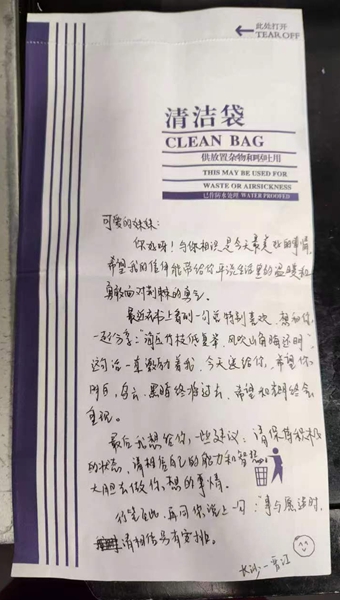 此处打开
TEAR OFF
清洁袋
CLEAN BAG
供放置杂物和呕吐用
THIS MAY BE USED FOR
WASTE OR AIRSICKNESS
已作防水处理 WATER PROOFED
可爱的妹妹:
你好呀!与你相识是今天最美好的事情,
希望我的信件能带给你平淡生活里的温暖和
勇敢面对荆棘的勇气。
最近在书上看到一句话特别喜欢,想和你
一起分享:“雨压竹枝低复举,风吹山角晦还明”
这句话一直激励着我,今天送给你,希望你
明白,乌云、黑暗终将过去,希望和光明终会
重现。
最后我想给你一些建议:请保持积极
的状态,请相信自己的能力和智慧,
大胆去做你想的事情。
行笔至此,再同你说上一句:“事与愿违时,
请相信另有安排。
长沙—丽江